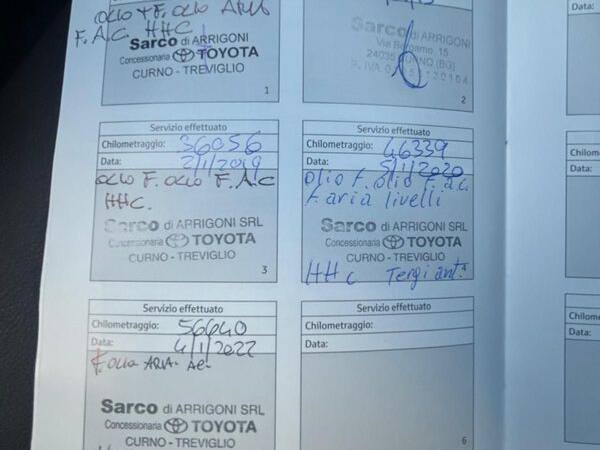 OLIO + F. OLIO ARIA
F.A.C HHC
Sarco di ARRIGONI
Concessionaria TOYOTA
CURNO - TREVIGLIO
1
Data:
Sarco di ARRIGONI
Via Bergamo, 15
24035 CURNO (BG)
P. IVA
2
Data:
Servizio effettuato
Chilometraggio: 36056
Data: 2/1/2019
OLIO F. OLIO F. A.C
HHC.
Sarco di ARRIGONI SRL
Concessionaria TOYOTA
CURNO - TREVIGLIO
3
Servizio effettuato
Chilometraggio: 46339
Data: 5/1/2020
Olio F. olio F. a.c.
F. aria livelli
Sarco di ARRIGONI SRL
Concessionaria TOYOTA
CURNO - TREVIGLIO
HHC Tergi ant.
4
Chilom
Data:
Servizio effettuato
Chilometraggio: 56640
Data: 4/1/2022
F. olio ARIA- AC-
Sarco di ARRIGONI SRL
Concessionaria TOYOTA
CURNO - TREVIGLIO
Servizio effettuato
Chilometraggio:
Data:
6
Chilome
Data: